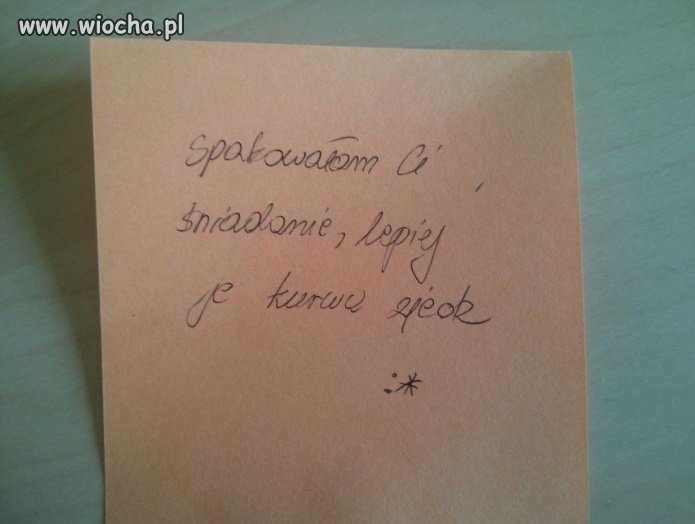 www.wiocha.pl
Spakowałam Ci
śniadanie, lepiej
je kurwa zjedz
:*